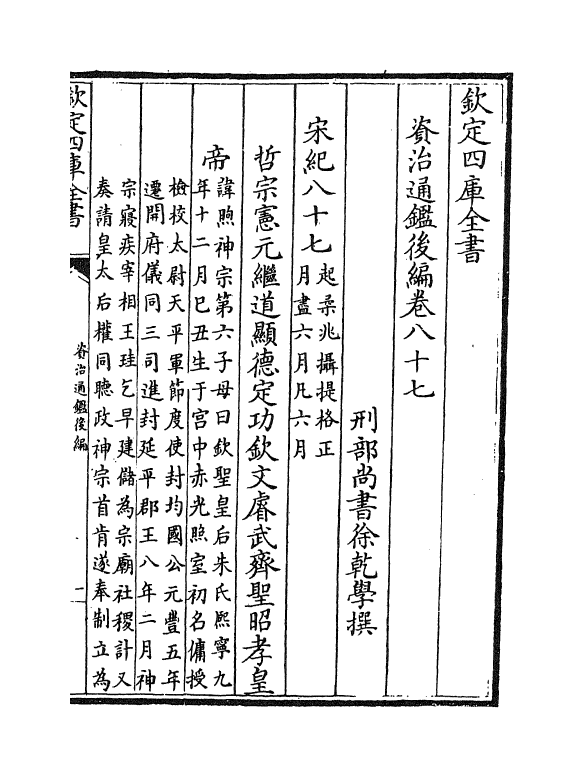 欽定四庫全書
資治通鑑後編卷八十七
刑部尚書徐乾學撰
宋紀八十七
起柔兆攝提格正
月盡六月凡六月
哲宗憲元繼道顯德定功欽文睿武齊聖昭孝皇
帝
諱煦神宗第六子母曰欽聖皇后朱氏熙寧九
年十二月巳丑生于宫中赤光照室初名傭授
檢校太尉天平軍節度使封均國公元豐五年
遷開府儀同三司進封延平郡王八年二月神
宗寢疾宰相王珪乞早建儲為宗廟社稷計又
奏請皇太后權同聽政神宗首肯遂奉制立為
欽定四庫全書
資治通鑑後編
一